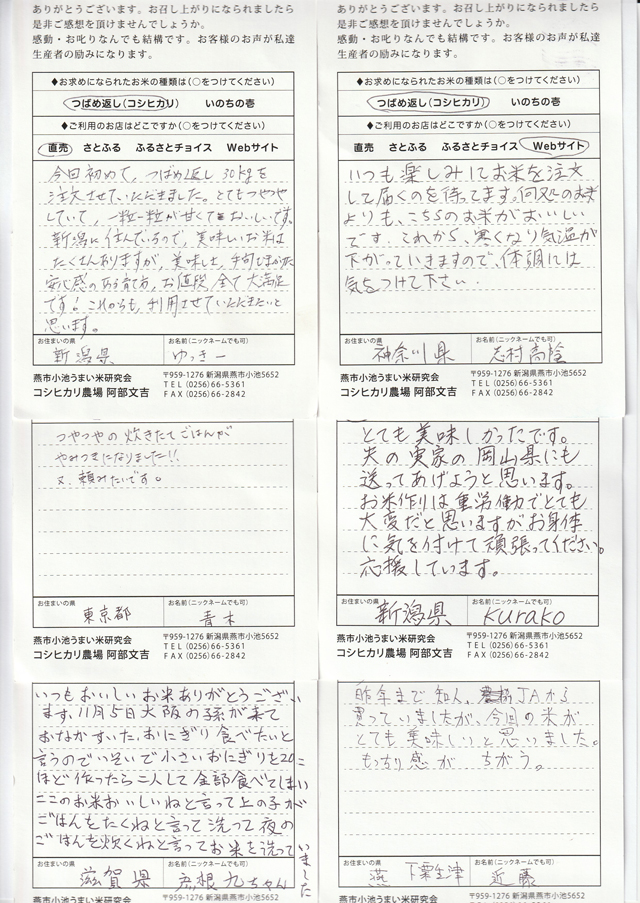 ありがとうございます。お召し上がりになられましたら
是非ご感想を頂けませんでしょうか。
感動・お叱りなんでも結構です。お客様のお声が私達
生産者の励みになります。
◆お求めになられたお米の種類は(○をつけてください)
つばめ返し(コシヒカリ) いのちの壱
◆ご利用のお店はどこですか(○をつけてください)
直売 さとふる ふるさとチョイス Webサイト
今回初めて、つばめ返し30kgを
注文させていただきました。とてもつやつや
していて、一粒一粒が甘くておいしいです。
新潟に住んでいるので、美味しいお米は
たくさんありますが、美味しさ、
安心感のある育て方、お値段、全て大満足
です!これからも、利用させていただきたいと
思います。
お住まいの県 お名前(ニックネームでも可)
新潟県 ゆっきー
燕市小池うまい米研究会
コシヒカリ農場 阿部文吉
〒959-1276 新潟県燕市小池5652
TEL (0256)66-5361
FAX (0256)66-2842
ありがとうございます。お召し上がりになられましたら
是非ご感想を頂けませんでしょうか。
感動・お叱りなんでも結構です。お客様のお声が私達
生産者の励みになります。
◆お求めになられたお米の種類は(○をつけてください)
つばめ返し(コシヒカリ) いのちの壱
◆ご利用のお店はどこですか(○をつけてください)
直売 さとふる ふるさとチョイス Webサイト
いつも楽しみにお米を注文
して届くのを待ってます。何処のお米
よりも、こちらのお米がおいしい
です。これから、寒くなり気温が
下がっていきますので、体調には
気をつけて下さい.
お住まいの県 お名前(ニックネームでも可)
神奈川県 志村
燕市小池うまい米研究会
コシヒカリ農場 阿部文吉
〒959-1276 新潟県燕市小池5652
TEL (0256)66-5361
FAX (0256)66-2842
つやつやの炊きたてごはんが
やみつきになりました!!
又、頼みたいです。
お住まいの県 お名前(ニックネームでも可)
東京都 青木
燕市小池うまい米研究会
コシヒカリ農場 阿部文吉
〒959-1276 新潟県燕市小池5652
TEL (0256)66-5361
FAX (0256)66-2842
とても美味しかったです。
夫の実家の岡山県にも
送ってあげようと思います。
お米作りは重労働でとても
大変だと思いますがお身体
に気を付けて頑張ってください。
応援しています。
お住まいの県 お名前(ニックネームでも可)
新潟県 kurako
燕市小池うまい米研究会
コシヒカリ農場 阿部文吉
〒959-1276 新潟県燕市小池5652
TEL (0256)66-5361
FAX (0256)66-2842
いつもおいしいお米ありがとうござい
ます、11月5日大阪の孫が来て
おなかすいた、おにぎり食べたいと
言うのでいそいで小さいおにぎりを20こ
ほど作ったら二人して全部食べてしまい
ここのお米おいしいねと言って上の子が
ごはんをたくねと言って洗って夜の
ごはんを炊くねと言ってお米を洗って
いました
お住まいの県 お名前(ニックネームでも可)
滋賀県 彦根九ちゃん
燕市小池うまい米研究会
〒959-1276 新潟県燕市小池5652
昨年まで知人、JAから
買っていましたが、今回の米が
とても美味しいと思いました。
もっちり感がちがう。
お住まいの県 お名前(ニックネームでも可)
燕 下粟生津 近藤
燕市小池うまい米研究会
〒959-1276 新潟県燕市小池5652